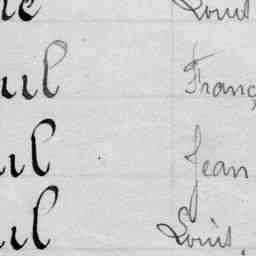 Louis
ul Franç
ul Jean
ul Louis.